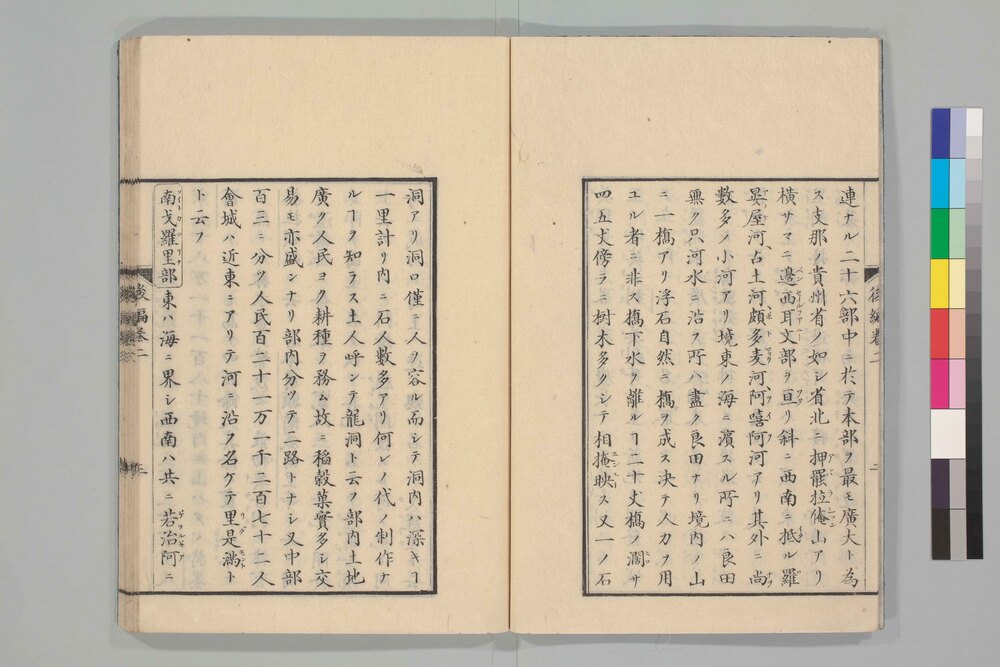 連ナル二十六部中ニ於テ本部ヲ最モ廣大ト為
ス支那ノ貴州省ノ如シ省北ニ押罷拉俺山アリ
横サマニ邊西耳文部ヲ亘リ斜ニ西南ニ抵ル羅
晏屋河、占土河、頗多麦河阿嘻阿河アリ其外ニ尚
數多ノ小河アリ境東ノ海ニ濱スル所ニハ良田
無ク只河水ニ沿フ所ハ盡ク良田ナリ境内ノ山
ニ一橋アリ浮石自然ニ橋ヲ成ス決テ人力ヲ用
ユル者ニ非ス橋下水ヲ離ルヿ二十丈橋ノ濶サ
四五丈傍ラニ樹木多クシテ相掩映ス又一ノ石
後編巻二
二
洞アリ洞口僅ニ一人ヲ容ル而シテ洞内ハ深キヿ
一里計リ内ニ石人數多アリ何レノ代ノ制作ナ
ルヿヲ知ラス土人呼ンテ龍洞ト云フ部内土地
廣ク人民ヨク耕種ヲ務ム故ニ稲穀菓實多シ交
易モ亦盛ンナリ部内分ツテ二路トナシ又中部
百三ニ分ツ人民百二十一万一千二百七十二人
會城ハ近東ニアリテ河ニ沿フ名ケテ里是満ト
ト云フ
南戈羅里部東ハ海ニ界シ西南ハ共ニ若治阿ニ
後編巻二
三